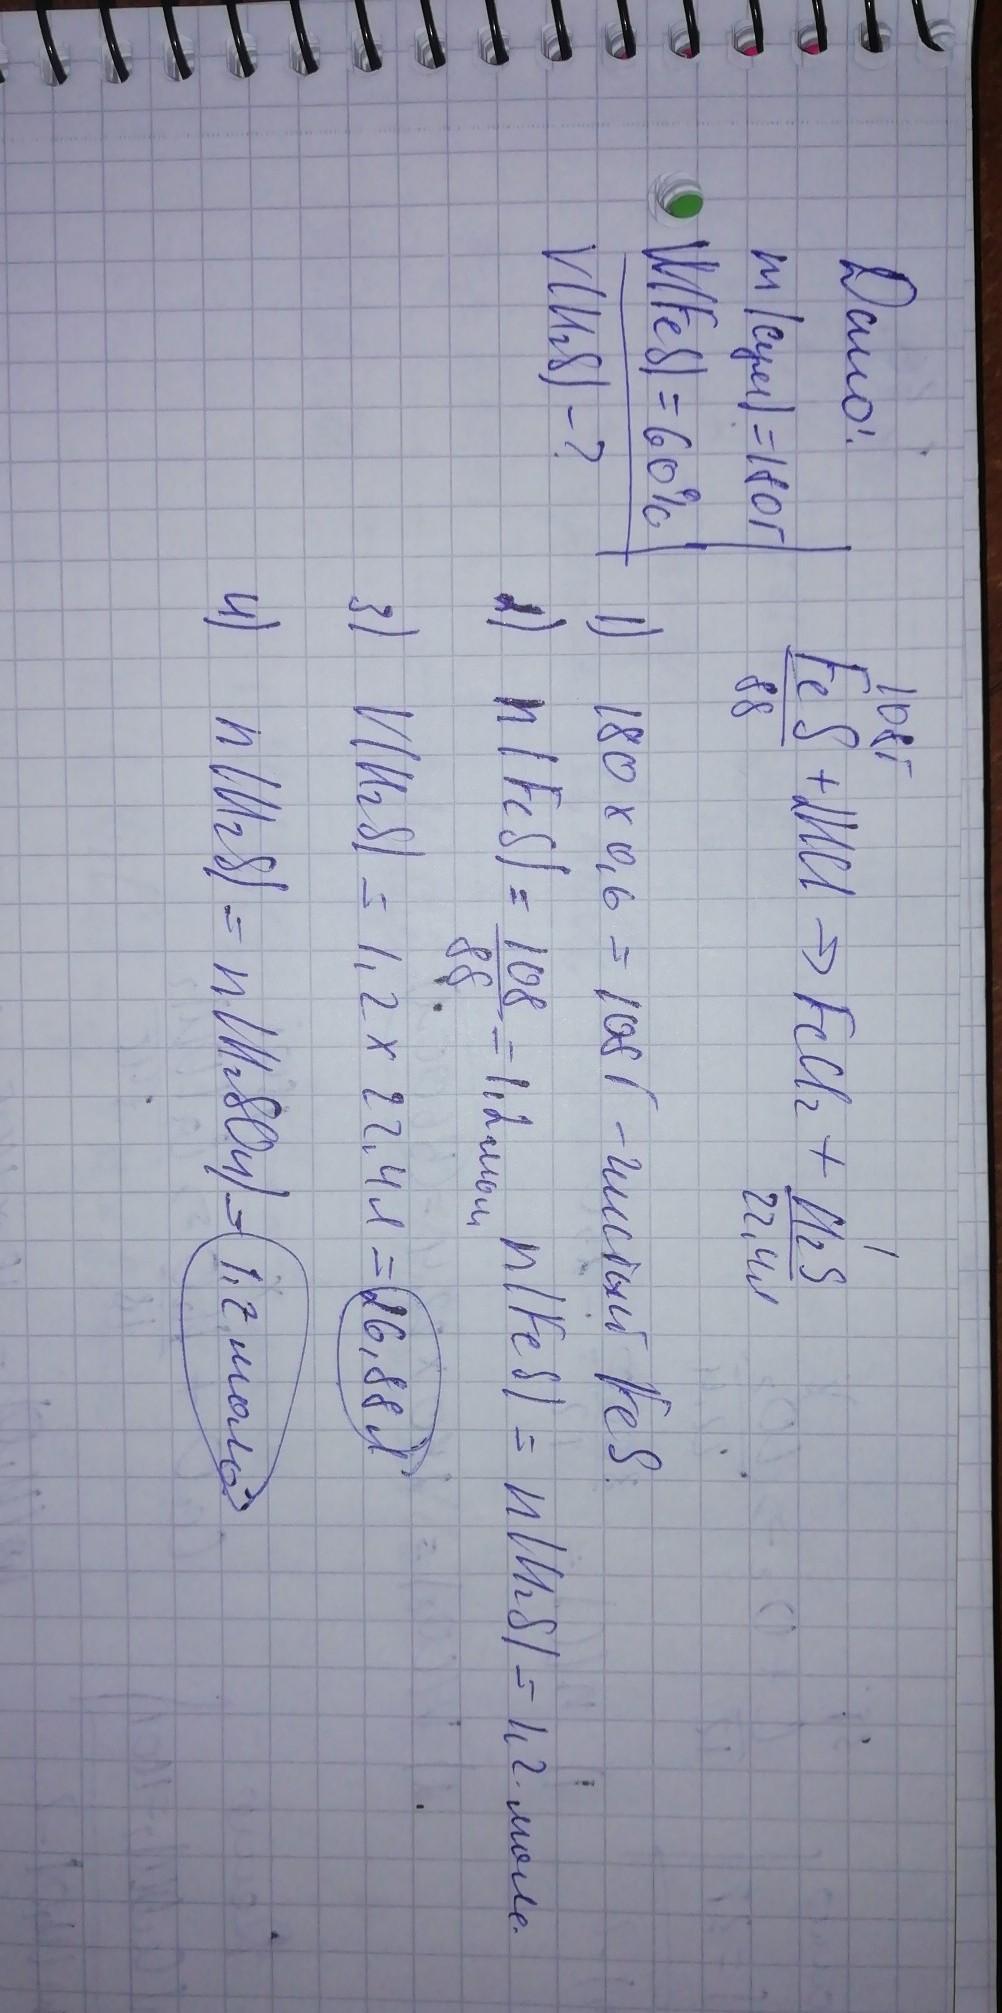 Дано:
m(сум) = 180г
W(FeS) = 60%
V(H₂S) - ?
108г
FeS + 2HCl → FeCl₂ + H₂S
88 22,4л
1) 180 x 0,6 = 108 г - чистый FeS.
2) n(FeS) = 108/88 = 1,2 моль n(FeS) = n(H₂S) = 1,2 моль.
3) V(H₂S) = 1,2 x 22,4л = 26,88л
4) n(H₂S) = n(H₂SO₄) = 1,2 моль